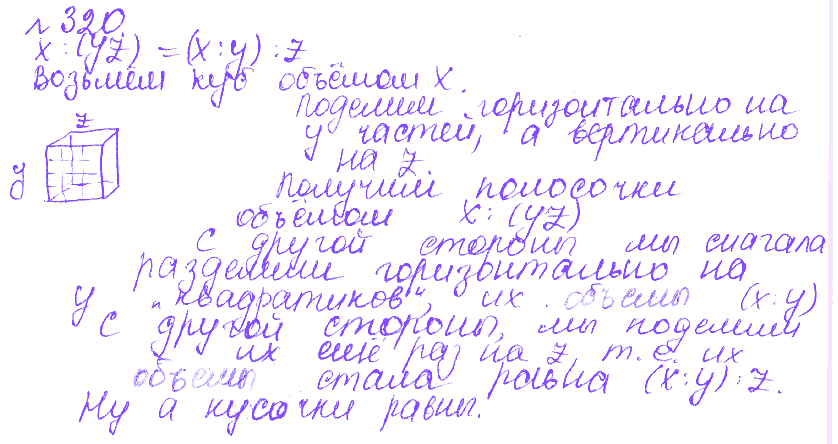 №320.
x:(yz) = (x:y):z
Возьмём куб объёмом x.
Поделим горизонтально на
y частей, а вертикально
z
на z
y
Получим полосочки
объёмом x:(yz)
С другой стороны мы сначала
разделили горизонтально на
y „квадратиков“, их объемы (x:y)
С другой стороны, мы поделили
их ещё раз на z, т.е. их
объемы стала равна (x:y):z.
Ну а кусочки равны.